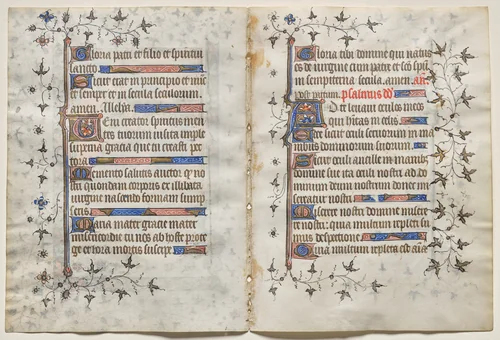 Gloria patri et filio et spiritui
sancto
Sicut erat in principio et nunc
et semper et in secula seculorum.
amen.
Veni creator spiritus mentes
tuorum visita imple
superna gratia que tu creasti pectora
Memento salutis auctor quod
nostri quondam corporis ex illibata
virgine nascendo formam sumpseris
Maria mater gracie mater
misericordie tu nos ab hoste protege
et hora mortis suscipe
Gloria tibi domine qui natus
es de virgine cum patre et sancto spiritu
in sempiterna secula. amen.
psalmus dd
Ad te levavi oculos meos
qui habitas in celis
Ecce sicut oculi servorum in manibus
dominorum suorum
Sicut oculi ancille in manibus
domine sue ita oculi nostri ad dominum
deum nostrum donec misereatur
nostri
Miserere nostri domine miserere
nostri: quia multum repleti sumus
despectione
Quia multum repleta est